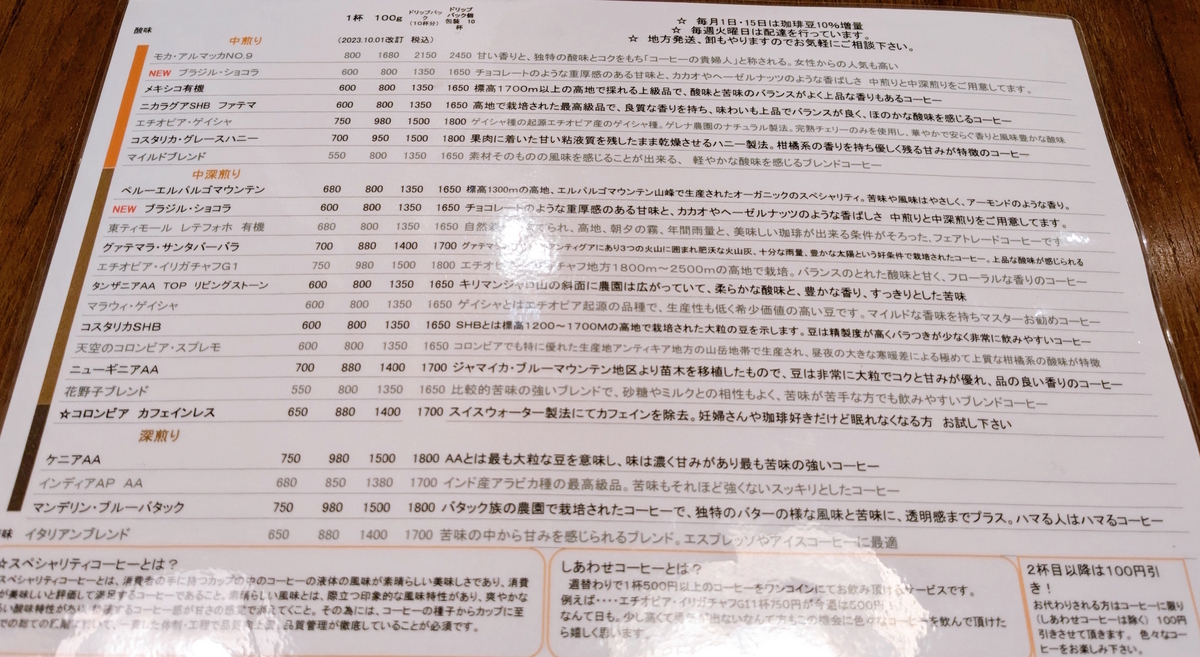 酸味
1杯 100g ドリップパック(10杯分) ドリップパック個包装 10杯
(2023.10.01改訂 税込)
☆ 毎月1日・15日は珈琲豆10%増量
☆ 毎週火曜日は配達を行っています。
☆ 地方発送、卸もやりますのでお気軽にご相談下さい。
中煎り
モカ・アルマッカNO.9 800 1680 2150 2450 甘い香りと、独特の酸味とコクをもち「コーヒーの貴婦人」と称される。女性からの人気も高い
NEW ブラジル・ショコラ 600 800 1350 1650 チョコレートのような重厚感のある甘味と、カカオやヘーゼルナッツのような香ばしさ 中煎りと中深煎りをご用意してます。
メキシコ有機 600 800 1350 1650 標高1700m以上の高地で採れる上級品で、酸味と苦味のバランスがよく上品な香りもあるコーヒー
ニカラグアSHB ファテマ 600 800 1350 1650 高地で栽培された最高級品で、良質な香りを持ち、味わいも上品でバランスが良く、ほのかな酸味を感じるコーヒー
エチオピア・ゲイシャ 750 980 1500 1800 ゲイシャ種の起源エチオピア産のゲイシャ種。ゲレナ農園のナチュラル製法。完熟チェリーのみを使用し、華やかで安らぐ香りと風味豊かな酸味
コスタリカ・グレースハニー 700 950 1500 1800 果肉に着いた甘い粘液質を残したまま乾燥させるハニー製法。柑橘系の香りを持ち優しく残る甘みが特徴のコーヒー
マイルドブレンド 550 800 1350 1650 素材そのものの風味を感じることが出来る、 軽やかな酸味を感じるブレンドコーヒー
中深煎り
ペルーエルパルゴマウンテン 680 800 1350 1650 標高1300mの高地、エルパルゴマウンテン山峰で生産されたオーガニックのスペシャリティ。苦味や風味はやさしく、アーモンドのような香り。
NEW ブラジル・ショコラ 600 800 1350 1650 チョコレートのような重厚感のある甘味と、カカオやヘーゼルナッツのような香ばしさ 中煎りと中深煎りをご用意してます。
東ティモール レテフォホ 有機 680 800 1350 1650 自然 られ、高地、朝夕の霧、年間雨量と、美味しい珈琲が出来る条件がそろった、フェアトレードコーヒーです
グァテマラ・サンタバーバラ 700 880 1400 1700 グァテマ アンティグアにあり3つの火山に囲まれ肥沃な火山灰、十分な雨量、豊かな太陽という好条件で栽培されたコーヒー。上品な酸味が感じられる
エチオピア・イリガチャフG1 750 980 1500 1800 エチオピ チャフ地方1800m～2500mの高地で栽培。バランスのとれた酸味と甘く、フローラルな香りのコーヒー
タンザニアAA TOP リビングストーン 700 880 1400 1650 キリマンジャロ山の斜面に農園は広がっていて、柔らかな酸味と、豊かな香り、すっきりとした苦味
マラウィ・ゲイシャ 600 800 1350 1650 ゲイシャとはエチオピア起源の品種で、生産性も低く希少価値の高い豆です。マイルドな香味を持ちマスターお勧めコーヒー
コスタリカSHB 600 800 1350 1650 SHBとは標高1200～1700Mの高地で栽培された大粒の豆を示します。豆は精製度が高くバラつきが少なく非常に飲みやすいコーヒー
天空のコロンビア・スプレモ 600 800 1350 1650 コロンビアでも特に優れた生産地アンティキア地方の山岳地帯で生産され、昼夜の大きな寒暖差による極めて上質な柑橘系の酸味が特徴
ニューギニアAA 700 880 1400 1700 ジャマイカ・ブルーマウンテン地区より苗木を移植したもので、豆は非常に大粒でコクと甘みが優れ、品の良い香りのコーヒー
花野子ブレンド 550 800 1350 1650 比較的苦味の強いブレンドで、砂糖やミルクとの相性もよく、苦味が苦手な方でも飲みやすいブレンドコーヒー
☆コロンビア カフェインレス 650 880 1400 1700 スイスウォーター製法にてカフェインを除去。妊婦さんや珈琲好きだけど眠れなくなる方 お試し下さい
深煎り
ケニアAA 750 980 1500 1800 AAとは最も大粒な豆を意味し、味は濃く甘みがあり最も苦味の強いコーヒー
インディアAP AA 680 850 1380 1700 インド産アラビカ種の最高級品。苦味もそれほど強くないスッキリとしたコーヒー
マンデリン・ブルーバタック 750 980 1500 1800 バタック族の農園で栽培されたコーヒーで、独特のバターの様な風味と苦味に、透明感までプラス。ハマる人はハマるコーヒー
味 イタリアンブレンド 650 880 1400 1700 苦味の中から甘みを感じられるブレンド。エスプレッソやアイスコーヒーに最適
☆スペシャリティコーヒーとは？
スペシャリティコーヒーとは、消費者の手に持つカップの中のコーヒーの液体の風味が素晴らしい美味しさであり、消費
が美味しいと評価して満足するコーヒーであること。素晴らしい風味とは、際立つ印象的な風味特性があり、爽やかな
い酸味特性があり、 するコーヒー感が甘さの感覚で消えてくこと。その為には、コーヒーの種子からカップに至
での総ての 一貫した体制・工程で品質 品質管理が徹底していることが必須です。
しあわせコーヒーとは？
週替わりで1杯500円以上のコーヒーをワンコインにてお飲み頂けるサービスです。
例えば・・・・エチオピア・イリガチャフG1 1杯750円が今週は500円！
なんて日も。少し高くて なんて方もこの機会に色々なコーヒーを飲んで頂けた
ら嬉しく思います。
2杯目以降は100円引
き！
お代わりされる方はコーヒーに限り
(しあわせコーヒーは除く) 100円
引きさせて頂きます。 色々なコー
ヒーをお楽しみ下さい。